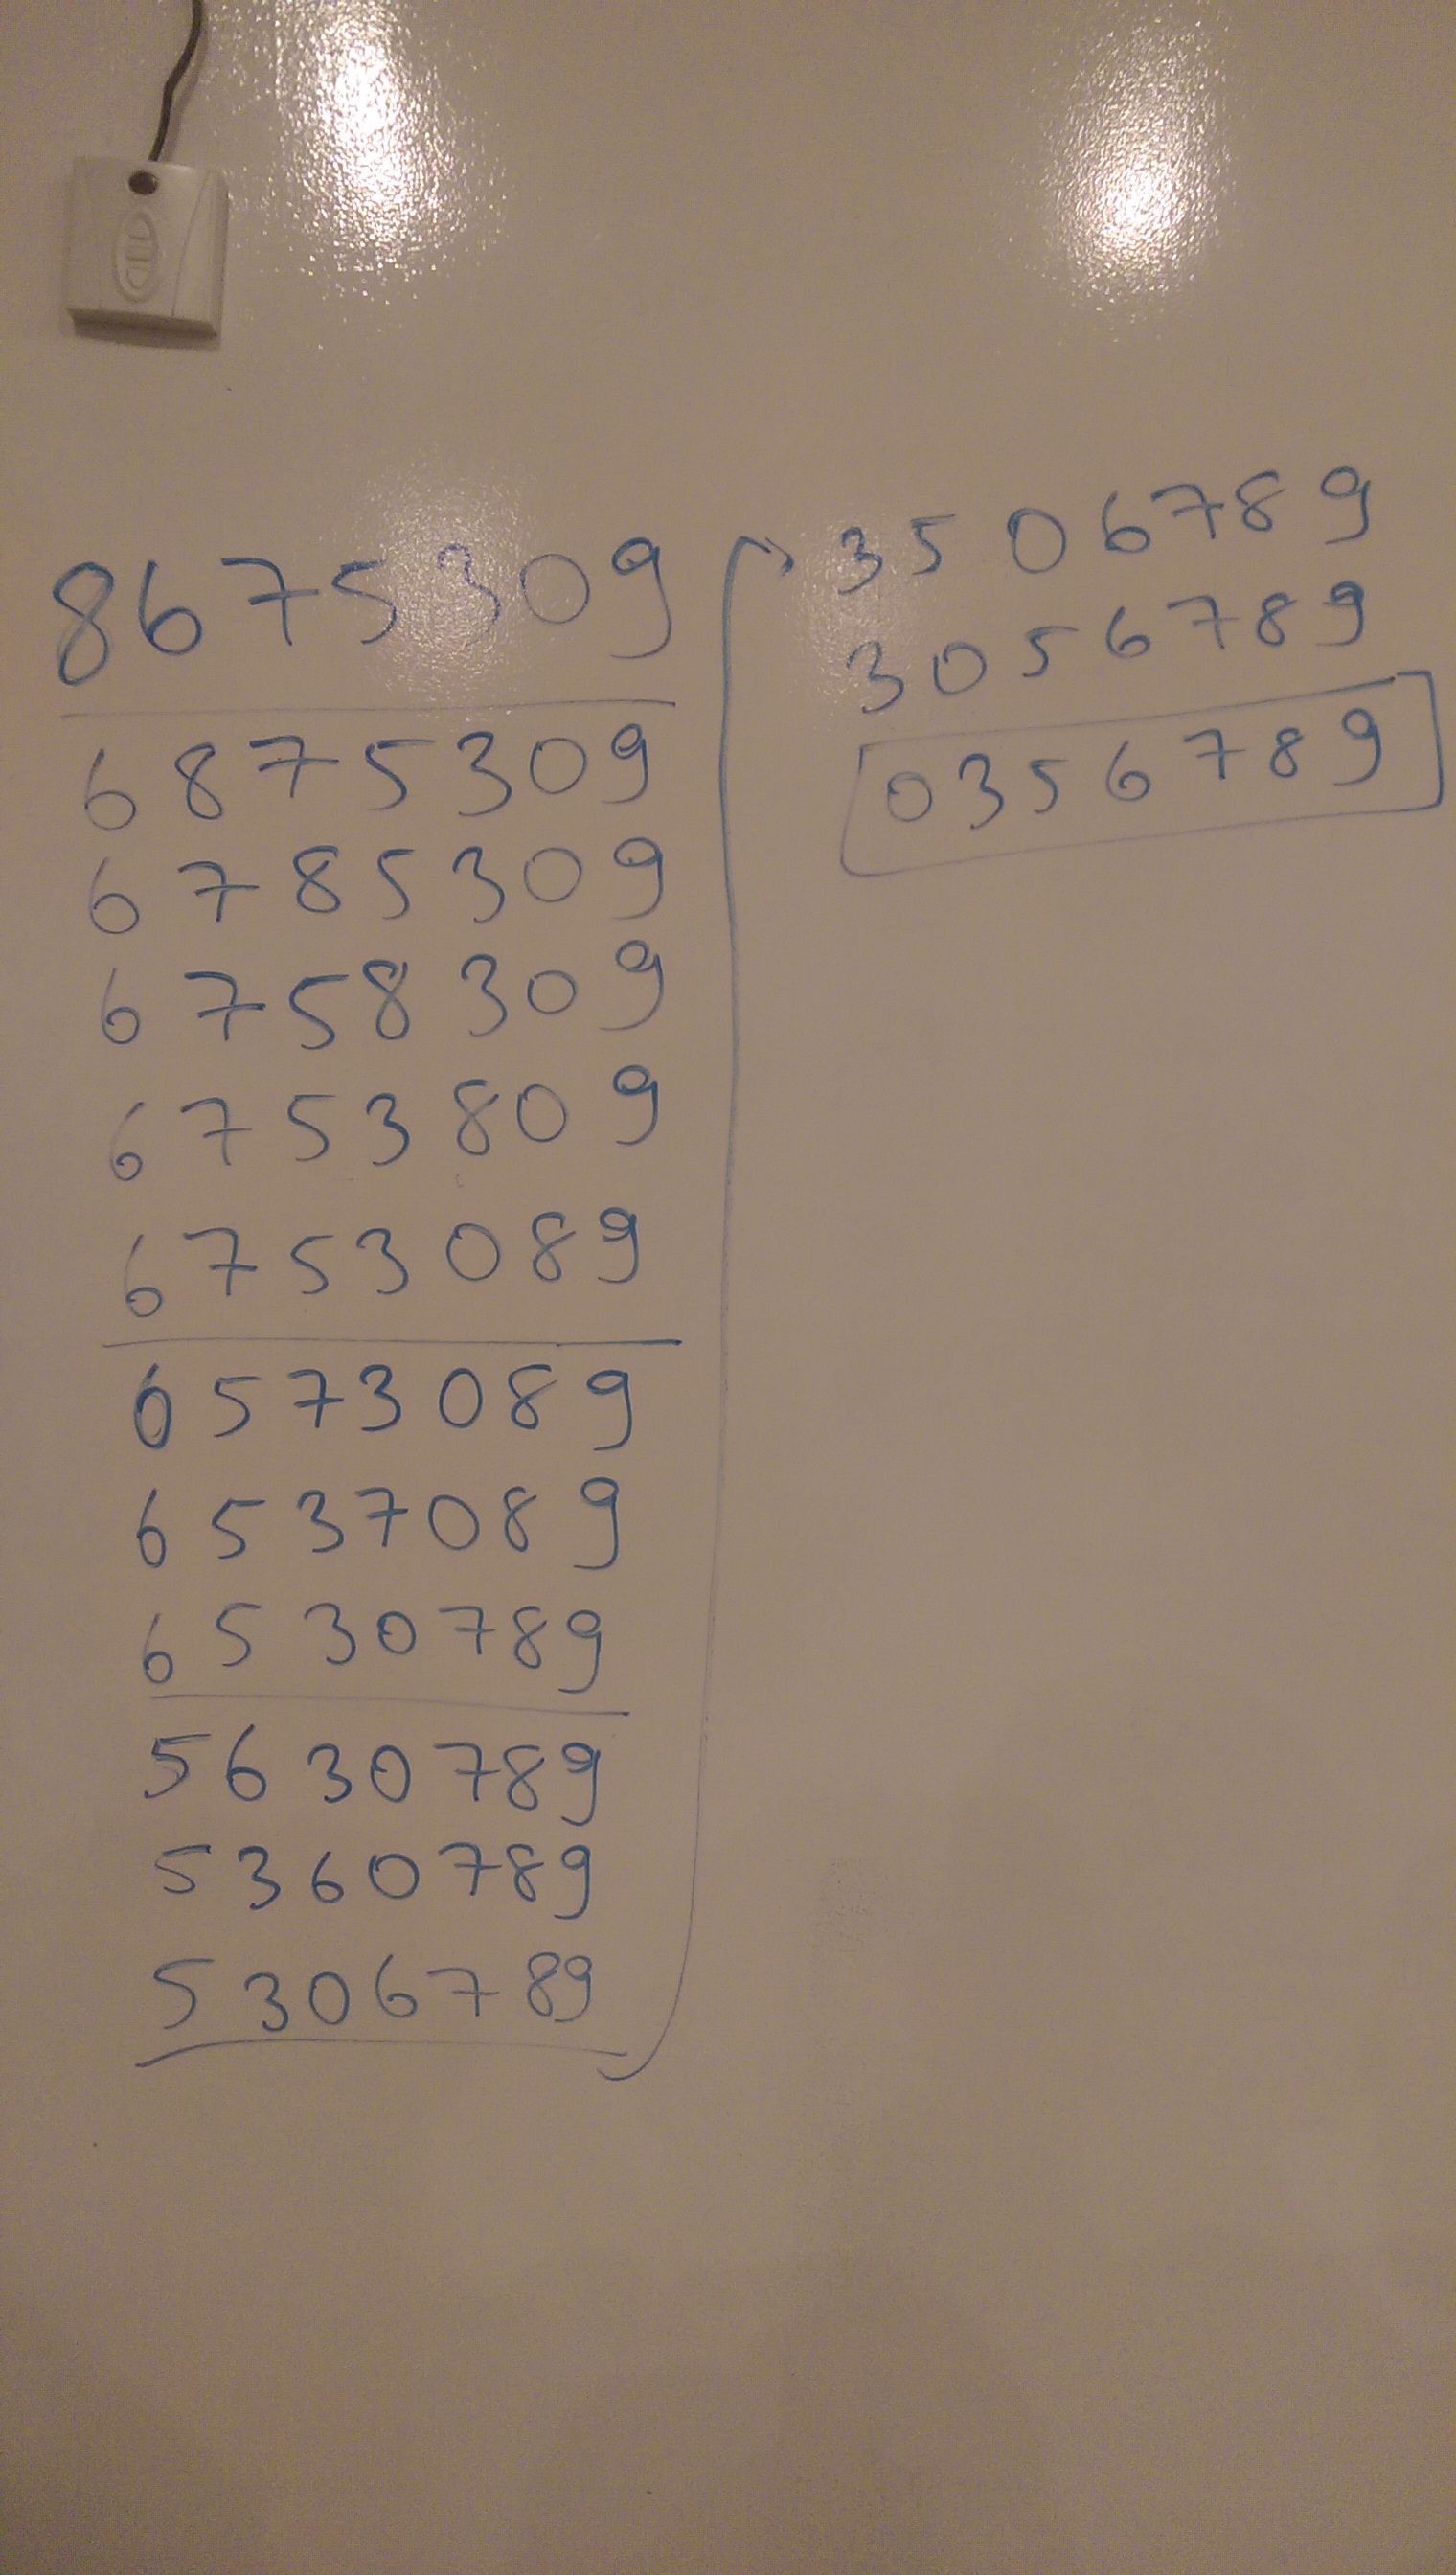 8675309
6875309
6785309
6758309
6753809
6753089
6573089
6537089
6530789
5630789
5360789
5306789
3506789
3056789
0356789